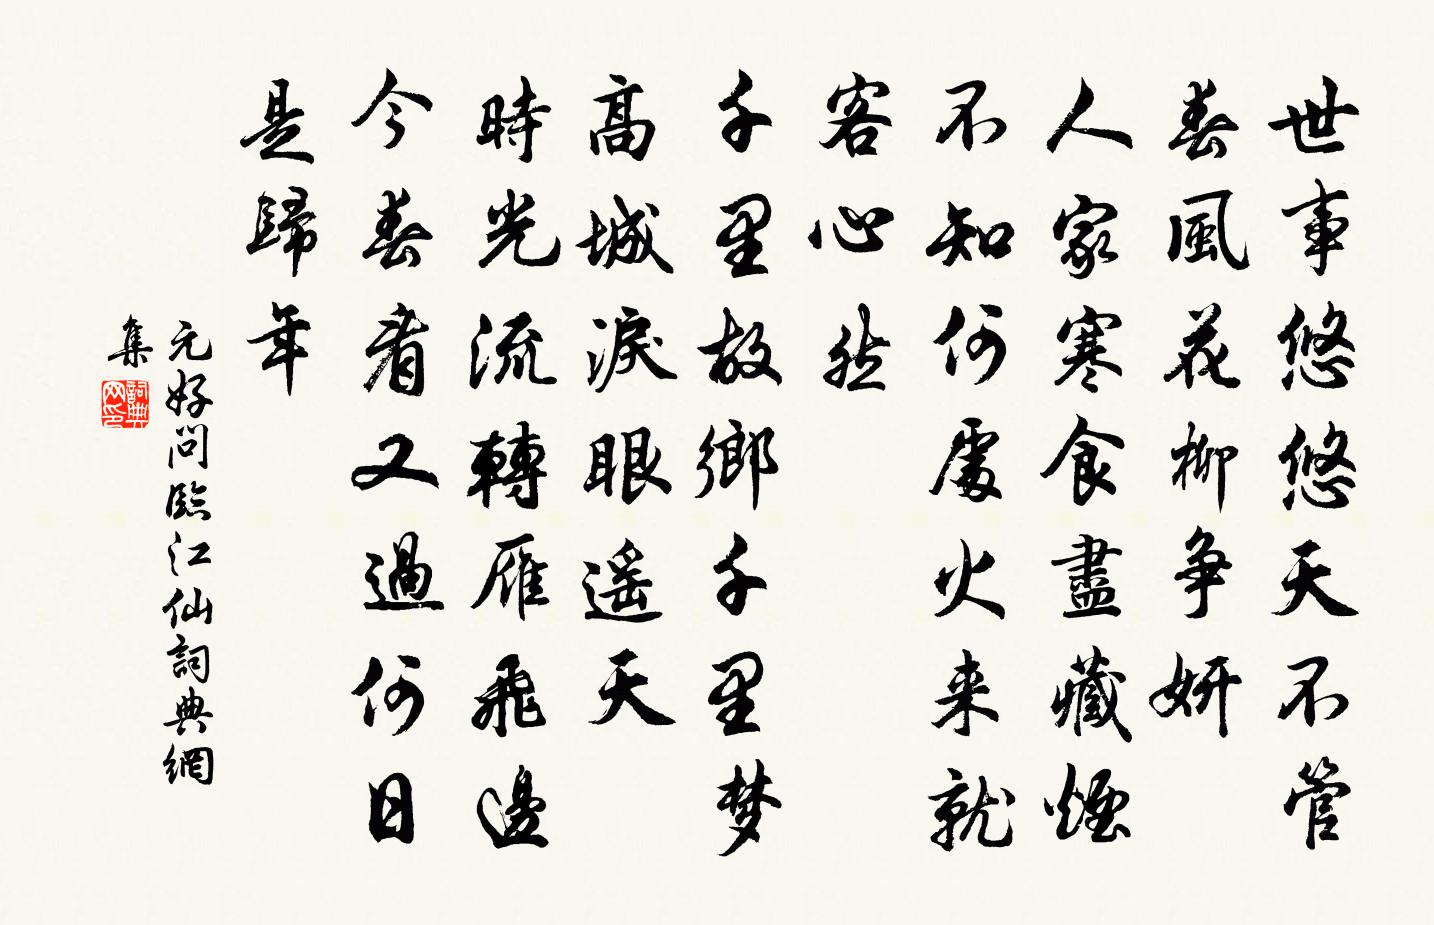 世事悠悠天不管
春風花柳争妍
人家寒食盡藏煙
不知何處火来就
客心然
千里故鄉千里梦
高城淚眼遥天
時光流轉雁飛邊
今春看又過何日
是歸年
元好問臨江仙詞典網
集
詞典网印